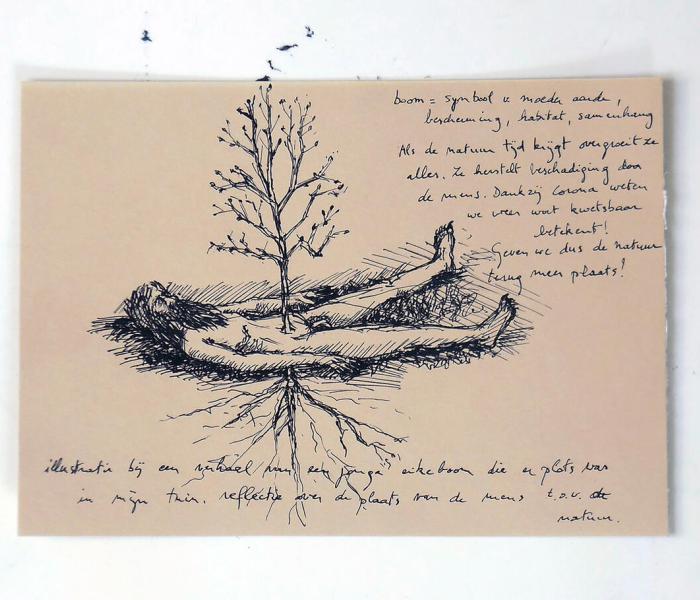 boom = symbool v. moeder aarde,
bescherming, habitat, samenhang
Als de natuur tijd krijgt overgroeit ze
alles. Ze herstelt beschadiging door
de mens. Dankzij Corona weten
we weer wat kwetsbaar
betekent!
Geven we dus de natuur
terug meer plaats!
illustratie bij een verhaal van een jonge eikeboom die er plots was
in mijn tuin. reflectie over de plaats van de mens t.o.v. de
natuur.